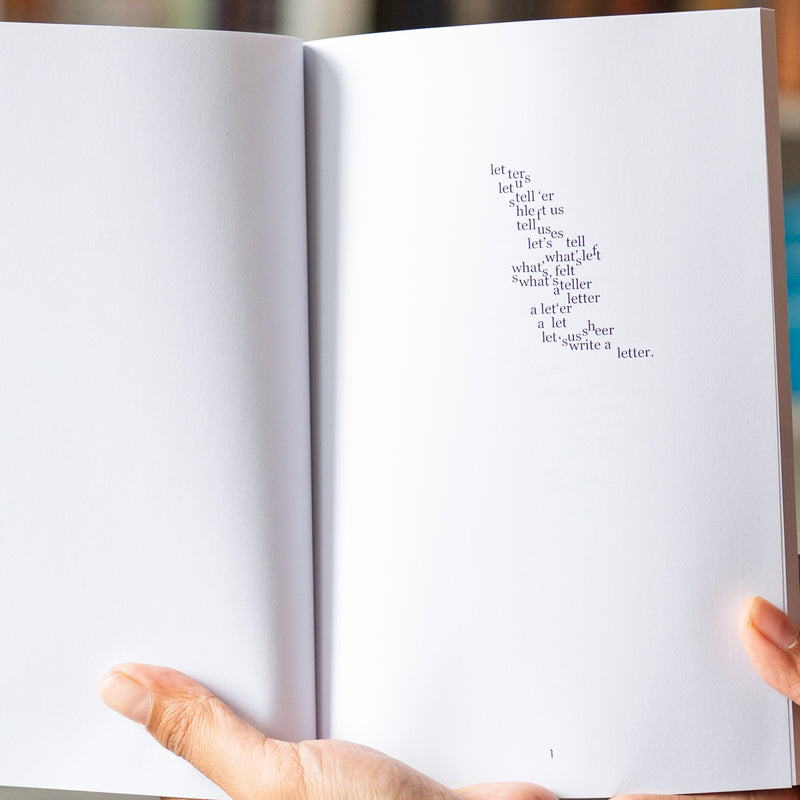 let ters
let us
stell ‘er
shle ft us
tell uses
let’s tell
what’s left
what’s, felt
swhat’s teller
a letter
a let‘er
a let sheer
let‘s us write a letter.
1